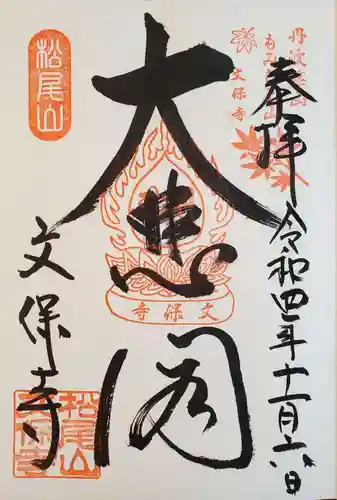 丹波篠山
もみじ三山
文保寺
奉拝
令和四年十一月六日
大悲閣
文保寺
松尾山
文保寺
松尾山
文保寺